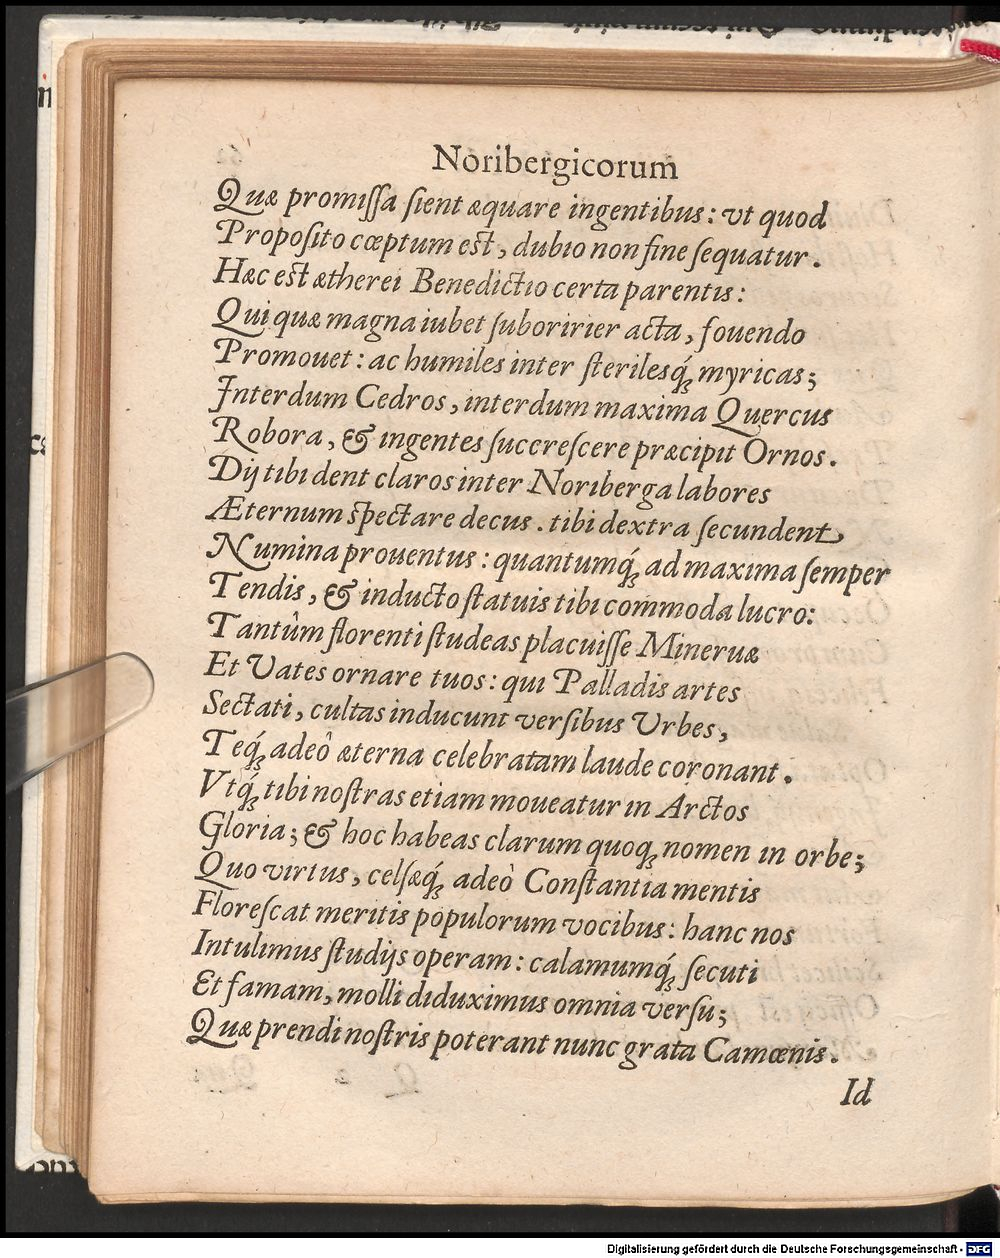 Noribergicorum
Quæ promiſſa ſient æquare ingentibus: vt quod
Propoſito cœptum est, dubio non fine ſequatur.
Hæc est ætherei Benedictio certa parentis:
Qui quæ magna iubet ſuboririer acta, fouendo
Promouet: ac humiles inter ſterilesq́ꝫ myricas;
Interdum Cedros, interdum maxima Quercus
Robora, & ingentes ſuccreſcere præcipit Ornos.
Dij tibi dent claros inter Noriberga labores
Æternum spectare decus. tibi dextra ſecundent
Numina prouentus: quantumq́ꝫ ad maxima ſemper
Tendis, & inducto ſtatuis tibi commoda lucro:
Tantûm florenti ſtudeas placuiſſe Mineruæ
Et Vates ornare tuos: qui Palladis artes
Sectati, cultas inducunt verſibus Vrbes,
Teq́ꝫ adeò æterna celebratam laude coronant.
Vtq́ꝫ tibi noſtras etiam moueatur in Arctos
Gloria; & hoc habeas clarum quoqꝫ nomen in orbe;
Quo virtus, celſæq́ꝫ adeò Conſtantia mentis
Floreſcat meritis populorum vocibus: hanc nos
Intulimus ſtudijs operam: calamumq́ꝫ ſecuti
Et famam, molli diduximus omnia verſu;
Quæ prendi noſtris poterant nunc grata Camœnis.
Id
Digitalisierung gefördert durch die Deutsche Forschungsgemeinschaft - DFG